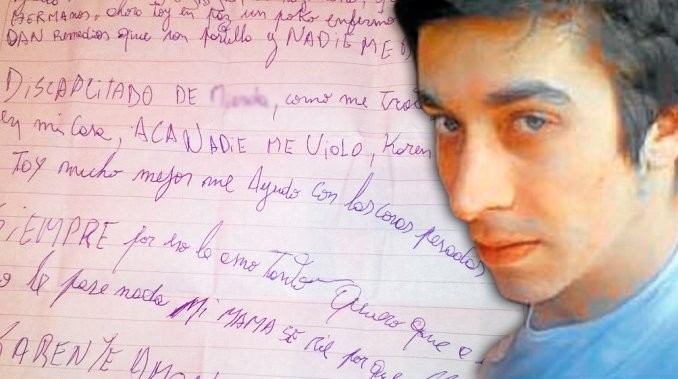 HERMANOS, ahora toy en paz un poko enfermo
DAN Remedios que son pastilla y NADIE ME D
DISCAPCITADO DE como me trat
en mi Casa, ACA NADIE ME VIOLO, Karen
TOY mucho mejor me Ayudo con las cosas pesadas
SiEMPRE por eso la amo Tanto Quiero que e
le pase nada Mi MAMA SE rie porque
KAREN TE AMO